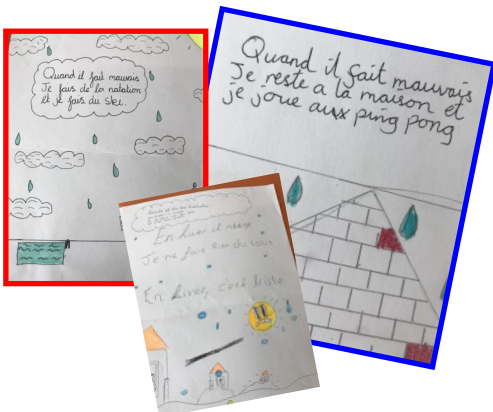 Quand il fait mauvais
Je fais de la natation
et je fais du Ski.
Quand il fait mauvais
Je reste a la maison et
je joue aux ping pong
En hiver il neige
Je ne fais rien du tous
En hiver, c'est triste